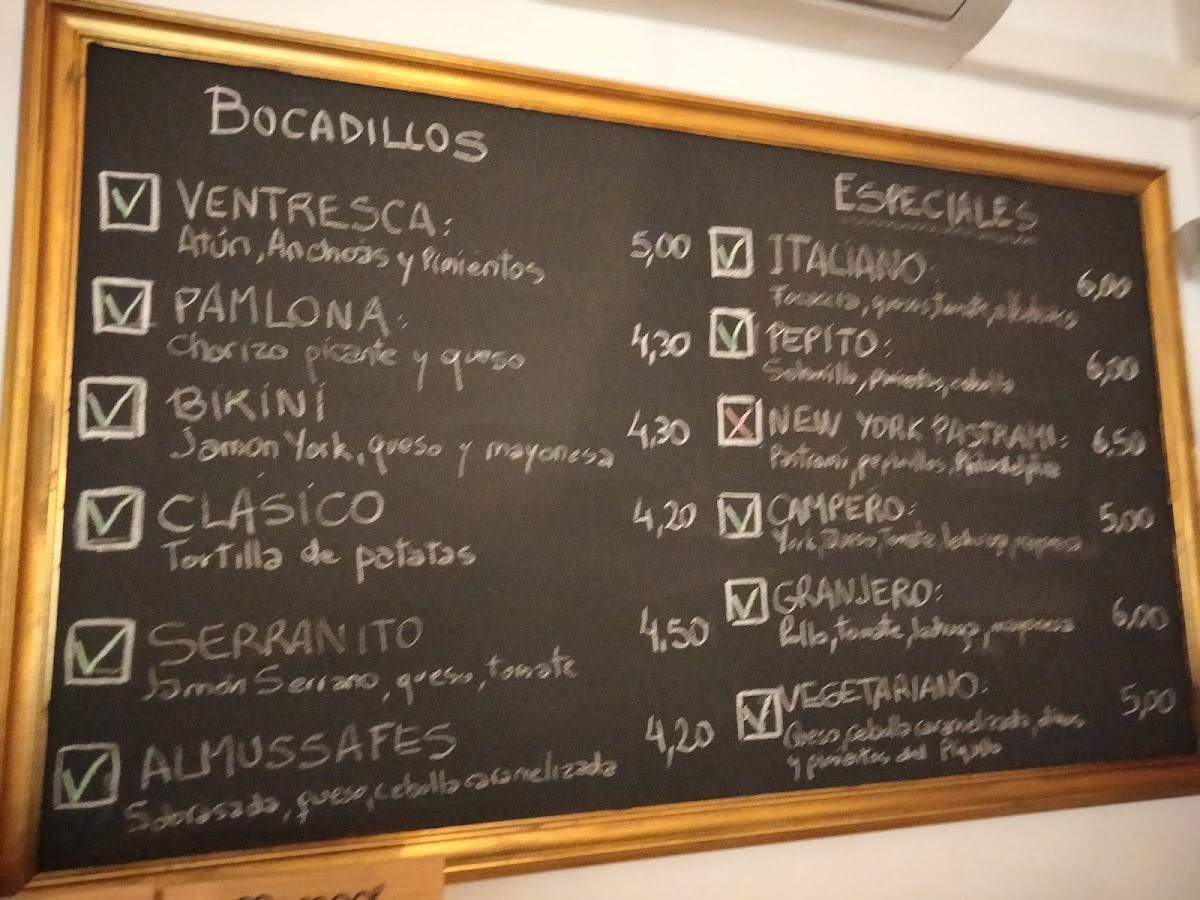 BOCADILLOS
VENTRESCA: 5,00
Atún, Anchoas y Pimientos
PAMLONA: 4,30
Chorizo picante y queso
BIKINI 4,30
Jamón York, queso y mayonesa
CLASICO 4,20
Tortilla de patatas
SERRANITO 4,50
Jamón Serrano, queso, tomate
ALMUSSAFES 4,20
Sobrasada, queso, cebolla caramelizada
ESPECIALES
ITALIANO: 6,00
Focaccia, queso, tomate,
PEPITO: 6,00
Solomillo, pimientos, cebolla
NEW YORK PASTRAMI: 6,50
Pastrami, pepinillos, Philadelphia
CAMPERO: 5,00
York, Queso, Tomate, lechuga, mayonesa
GRANJERO: 6,00
Pollo, tomate, lechuga, mayonesa
VEGETARIANO: 5,00
Queso, cebolla caramelizada, olivas
y pimientos del Piquillo